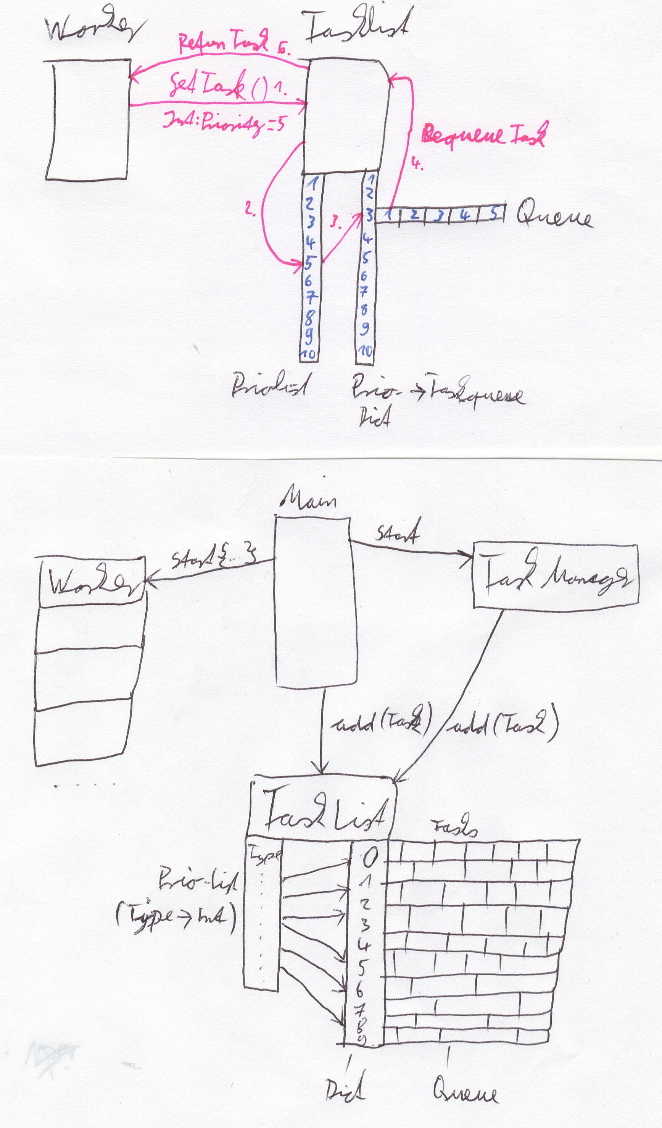 Worker
Tasklist
Return Task 5.
getTask() 1.
Int:Priority=5
Dequeue Task
4.
2.
3.
1
2
3
4
5
6
7
8
9
10
1
2
3
4
5
6
7
8
9
10
1 2 3 4 5 Queue
Priolist
Prio- → Taskqueue
Dict
Main
start{..}
start
Worker
Task Manager
add(Task)
add(Task)
.....
Task List
Tasks
Type
Prio-list
(Type → Int)
0
1
2
3
4
5
6
7
8
9
Dict
Queue